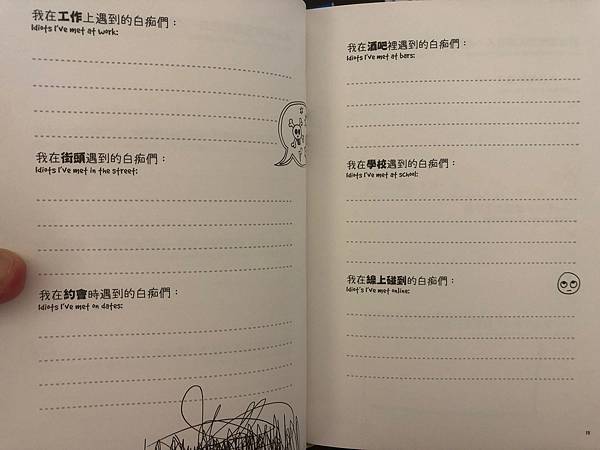 我在工作上遇到的白痴們：
Idiots I've met at work:
我在街頭遇到的白痴們：
Idiots I've met in the street:
我在約會時遇到的白痴們：
Idiots I've met on dates:
我在酒吧裡遇到的白痴們：
Idiots I've met at bars:
我在學校遇到的白痴們：
Idiots I've met at school:
我在線上碰到的白痴們：
Idiot's I've met online: